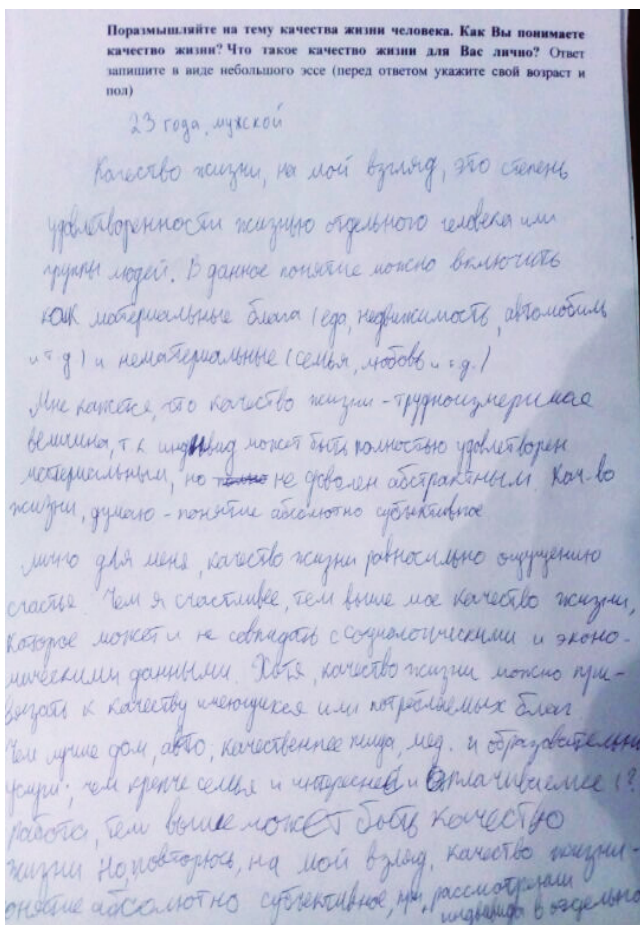 Поразмышляйте на тему качества жизни человека. Как Вы понимаете
качество жизни? Что такое качество жизни для Вас лично? Ответ
запишите в виде небольшого эссе (перед ответом укажите свой возраст и
пол)
23 года, мужской
Качество жизни, на мой взгляд, это степень
удовлетворенности жизнью отдельного человека или
группы людей. В данное понятие можно включить
как материальные блага (еда, недвижимость, автомобиль
и т д) и нематериальные (семья, любовь и т д.)
Мне кажется, что качество жизни - трудноизмеримая
величина, т к индивид может быть полностью удовлетворен
материальным, но не доволен абстрактным. Кач-во
жизни, думаю - понятие абсолютно субъективное
лично для меня, качество жизни равносильно ощущению
счастья. Чем я счастливее, тем выше мое качество жизни,
которое может и не совпадать с социологическими и эконо-
мическими данными. Хотя, качество жизни можно при-
вязать к качеству имеющихся или потребляемых благ
Чем лучше дом, авто, качественнее пища, мед. и образовательны
услуги; чем крепче семья и интересней и оплачиваемее (?
работа, тем выше может быть качество
жизни Но, повторюсь, на мой взгляд, качество жизни -
онятие абсолютно субъективное, при рассмотрении
индивида в отдельно